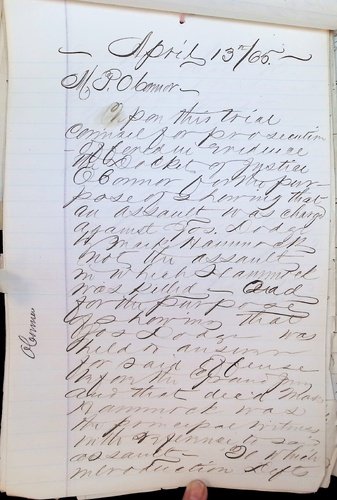 April 13th/65.
M. P. O'Connor
Upon this trial
Counsel for prosecution
offered in evidence
the Docket of Justice
O'Connor for the pur
pose of showing that
an assault was charged
against Jos. Dodge
by Mark Hammock
not the assault
in which Hammock
was killed - and
for the purpose
of showing that
Jos Dodge was
held to answer
the said offense
before the Grand Jury
and that dec'd Mark
Hammock was
the principal witness
in the defense to said
assault - To which
introduction Defts
O'Connor